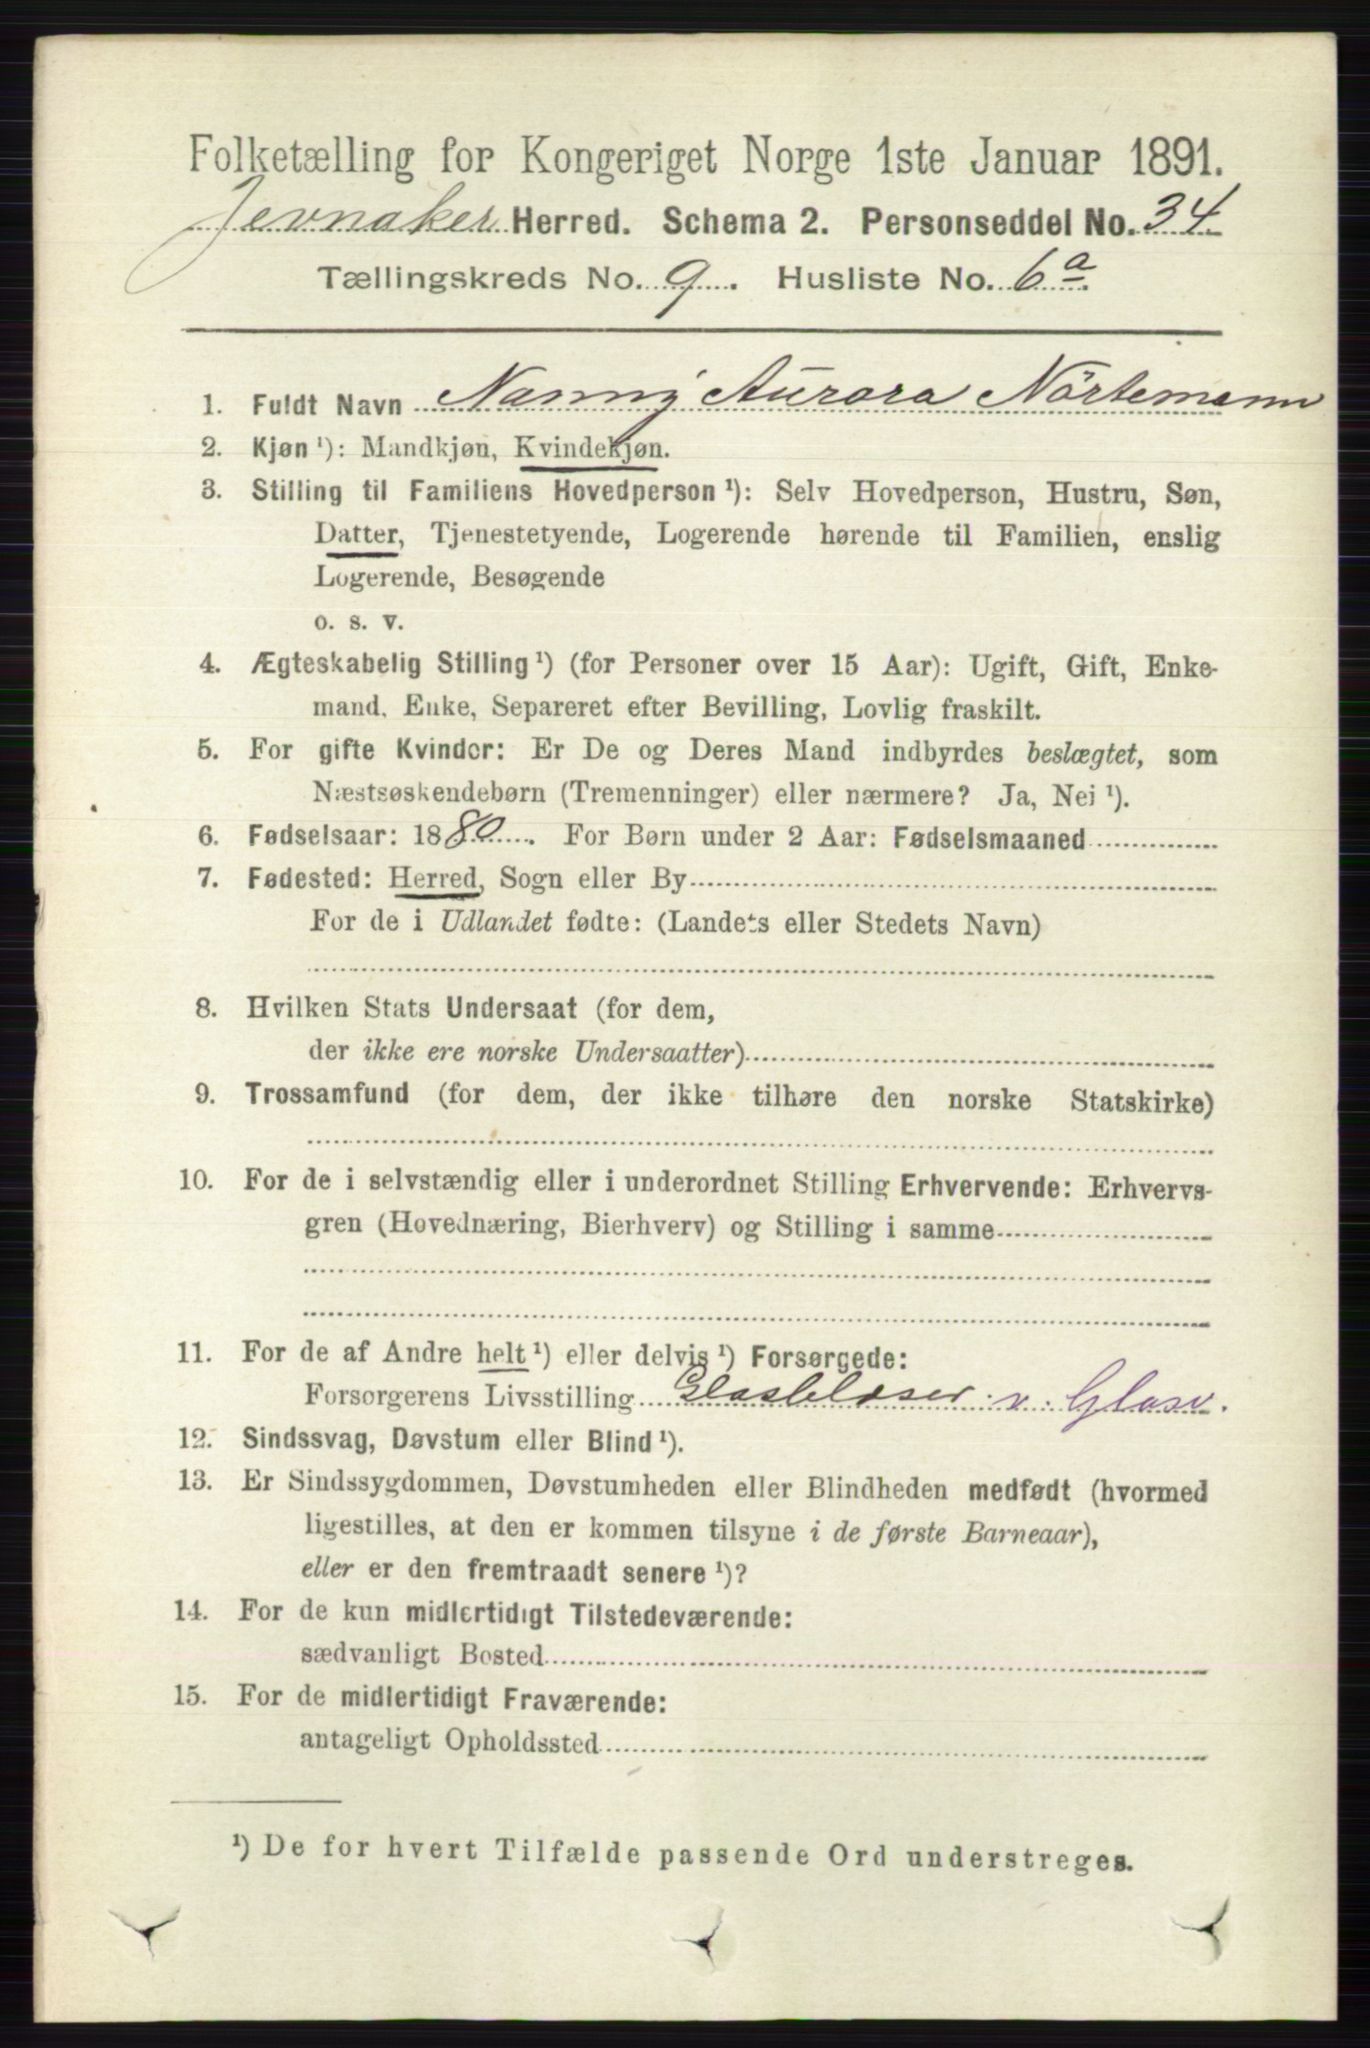 Folketælling for Kongeriget Norge 1ste Januar 1891.
Jevnaker Herred. Schema 2. Personseddel No. 34
Tællingskreds No. 9. Husliste No. 6a
1. Fuldt Navn Nanny Aurora Nörtemann
2. Kjøn ¹): Mandkjøn, Kvindekjøn.
3. Stilling til Familiens Hovedperson ¹): Selv Hovedperson, Hustru, Søn,
Datter, Tjenestetyende, Logerende hørende til Familien, enslig
Logerende, Besøgende
o. s. v.
4. Ægteskabelig Stilling ¹) (for Personer over 15 Aar): Ugift, Gift, Enke-
mand, Enke, Separeret efter Bevilling, Lovlig fraskilt.
5. For gifte Kvinder: Er De og Deres Mand indbyrdes beslægtet, som
Næstsøskendebørn (Tremenninger) eller nærmere? Ja, Nei ¹).
6. Fødselsaar: 1880. For Børn under 2 Aar: Fødselsmaaned
7. Fødested: Herred, Sogn eller By
For de i Udlandet fødte: (Landets eller Stedets Navn)
8. Hvilken Stats Undersaat (for dem,
der ikke ere norske Undersaatter)
9. Trossamfund (for dem, der ikke tilhøre den norske Statskirke)
10. For de i selvstændig eller i underordnet Stilling Erhvervende: Erhvervs-
gren (Hovednæring, Bierhverv) og Stilling i samme
11. For de af Andre helt ¹) eller delvis ¹) Forsørgede:
Forsørgerens Livsstilling Glasblæser v. Glasv.
12. Sindssvag, Døvstum eller Blind ¹).
13. Er Sindssygdommen, Døvstumheden eller Blindheden medfødt (hvormed
ligestilles, at den er kommen tilsyne i de første Barneaar),
eller er den fremtraadt senere ¹)?
14. For de kun midlertidigt Tilstedeværende:
sædvanligt Bosted
15. For de midlertidigt Fraværende:
antageligt Opholdssted
¹) De for hvert Tilfælde passende Ord understreges.